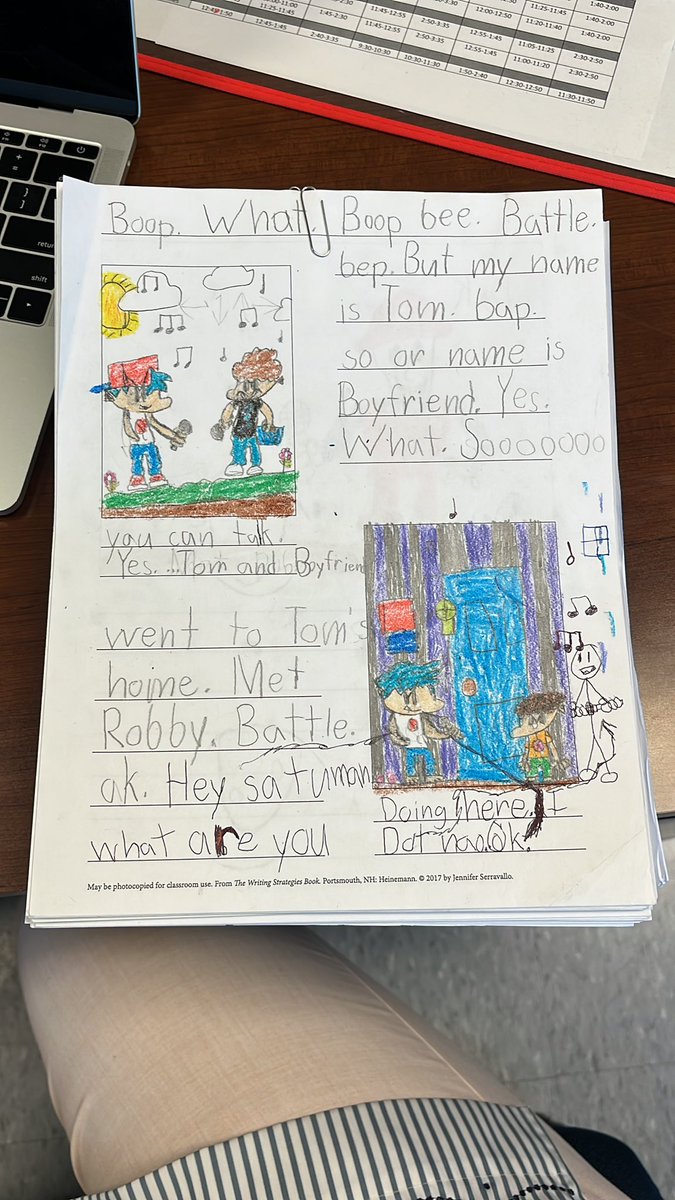 1:40-2:00
12:00-12:50 1:40-2:00
11:25-11:45 1:45-2:30 11:45-12:55 2:50-3:35 12:55-1:45 11:20-11:40 1:40-2:00
12:45-1:45 11:05-11:25 2:30-2:50
2:40-3:35 9:30-10:30 2:50-3:35 12:55-1:45 11:00-11:20 2:30-2:50
10:30-11:30 1:50-2:40 12:30-12:50 11:30-11:50
return
shift
Boop. What. Boop bee. Battle.
bep. But my name
is Tom. bap.
so or name is
Boyfriend. Yes.
What. Sooooooo
you can talk.
Yes. Tom and Boyfrien
went to Tom's
home. Met
Robby. Battle.
ak. Hey satuman
what are you
Doing here. I
Dot Ok.
May be photocopied for classroom use. From The Writing Strategies Book. Portsmouth, NH: Heinemann. © 2017 by Jennifer Serravallo.